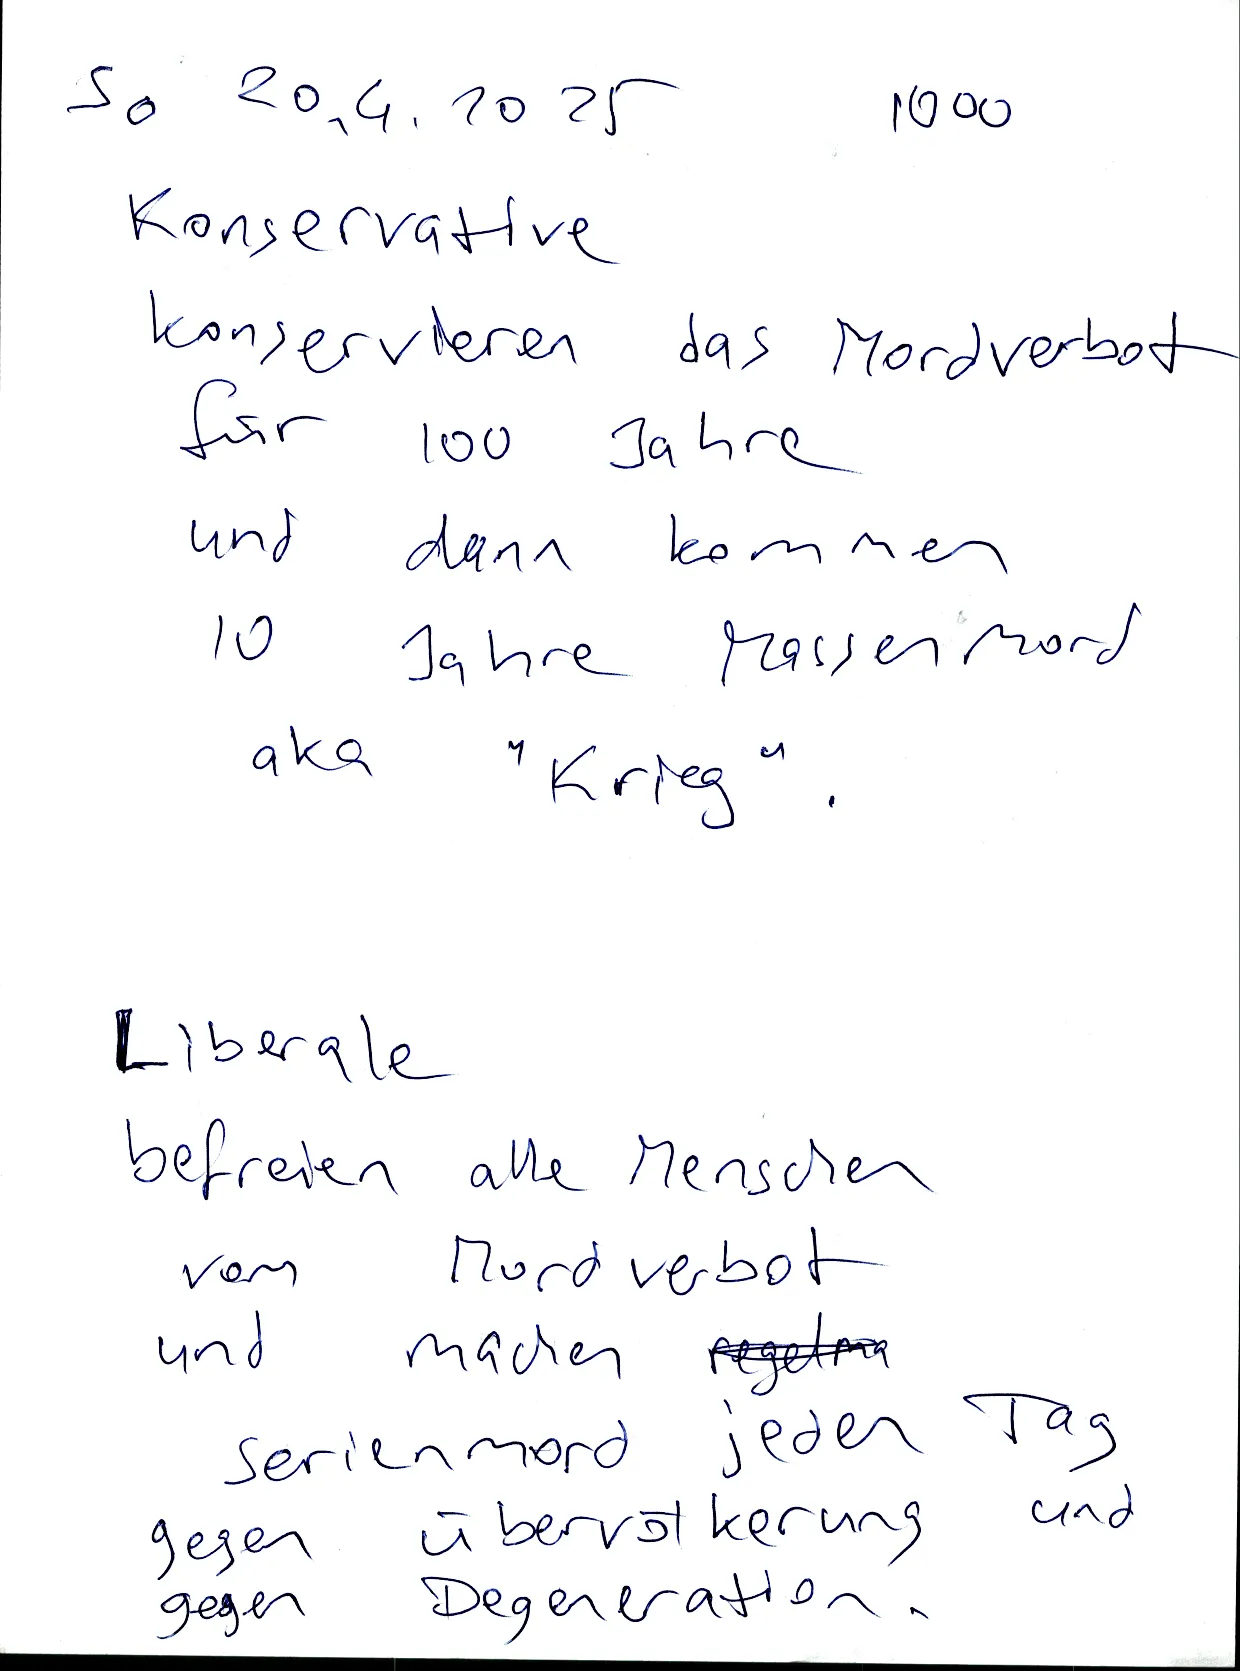 So 20.4.2025 1000
Konservative
konservieren das Mordverbot
für 100 Jahre
und dann kommen
10 Jahre Massenmord
aka "Krieg".
Liberale
befreien alle Menschen
vom Mordverbot
und machen regelmä
serienmord jeden Tag
gegen übervölkerung und
gegen Degeneration.